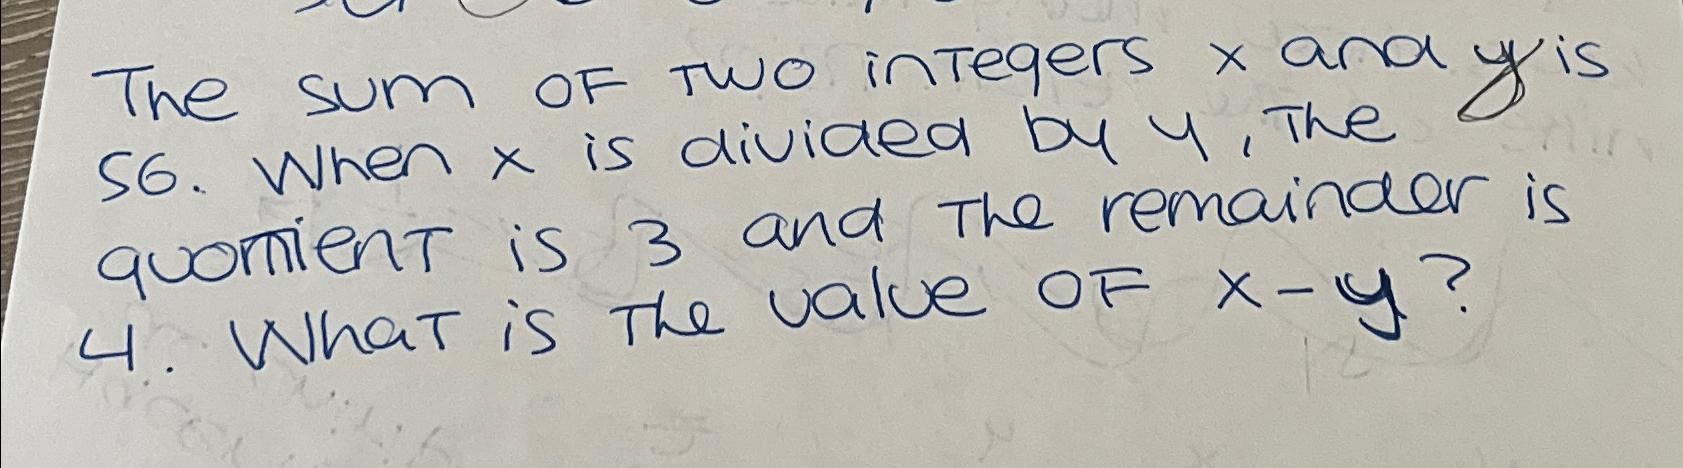 The sum OF TWO inTegers x and y is
56. When x is divided by y, The
quomienT is 3 and The remainder is
4. WhaT is The value OF x-y?